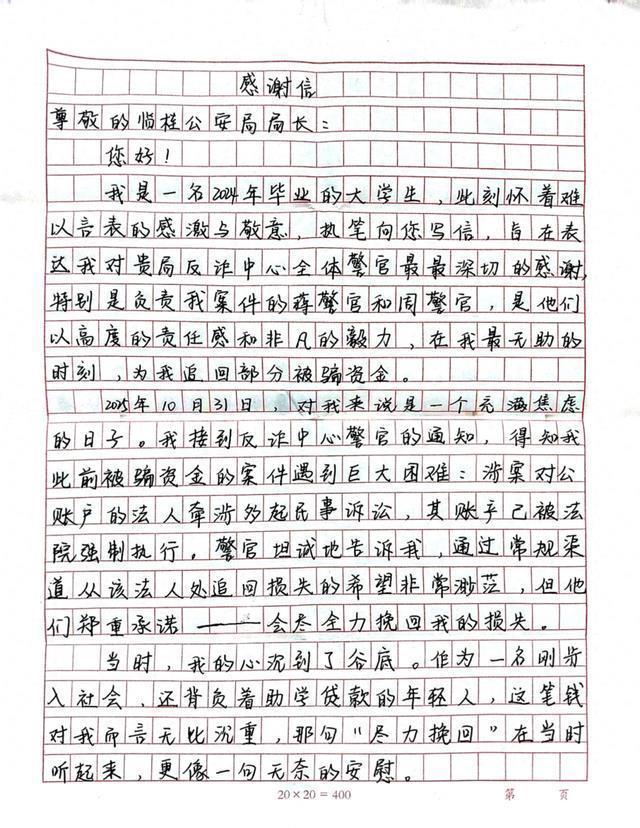 感谢信
尊敬的临桂公安局局长：
您好！
我是一名2024年毕业的大学生，此刻怀着难
以言表的感激与敬意，执笔向您写信，旨在表
达我对贵局反诈中心全体警官最最深切的感谢，
特别是负责我案件的蒋警官和周警官，是他们
以高度的责任感和非凡的毅力，在我最无助的
时刻，为我追回部分被骗资金。
2025年10月31日，对我来说是一个充满焦虑
的日子。我接到反诈中心警官的通知，得知我
此前被骗资金的案件遇到巨大困难：涉案对公
账户的法人牵涉多起民事诉讼，其账户已被法
院强制执行。警官坦诚地告诉我，通过常规渠
道从该法人处追回损失的希望非常渺茫，但他
们郑重承诺——会尽全力挽回我的损失。
当时，我的心沉到了谷底。作为一名刚步
入社会、还背负着助学贷款的年轻人，这笔钱
对我而言无比沉重，那句“尽力挽回”在当时
听起来，更像一句无奈的安慰。
20×20=400 第 页